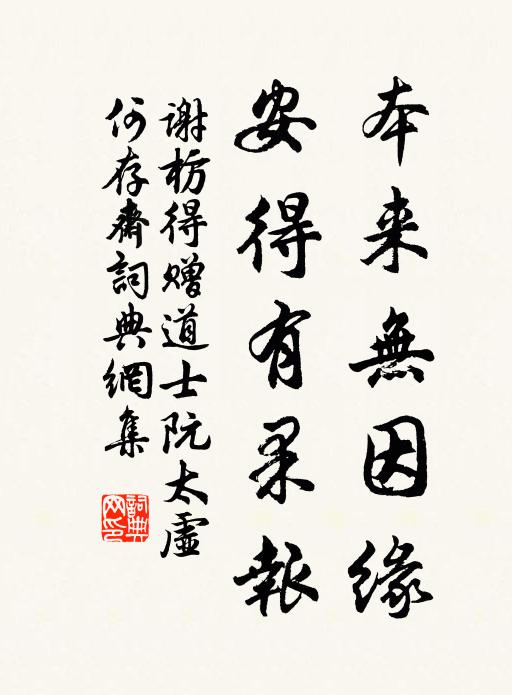 本来無因緣
安得有果報
謝枋得贈道士阮太虛
何存齋詞典網集
詞典網印